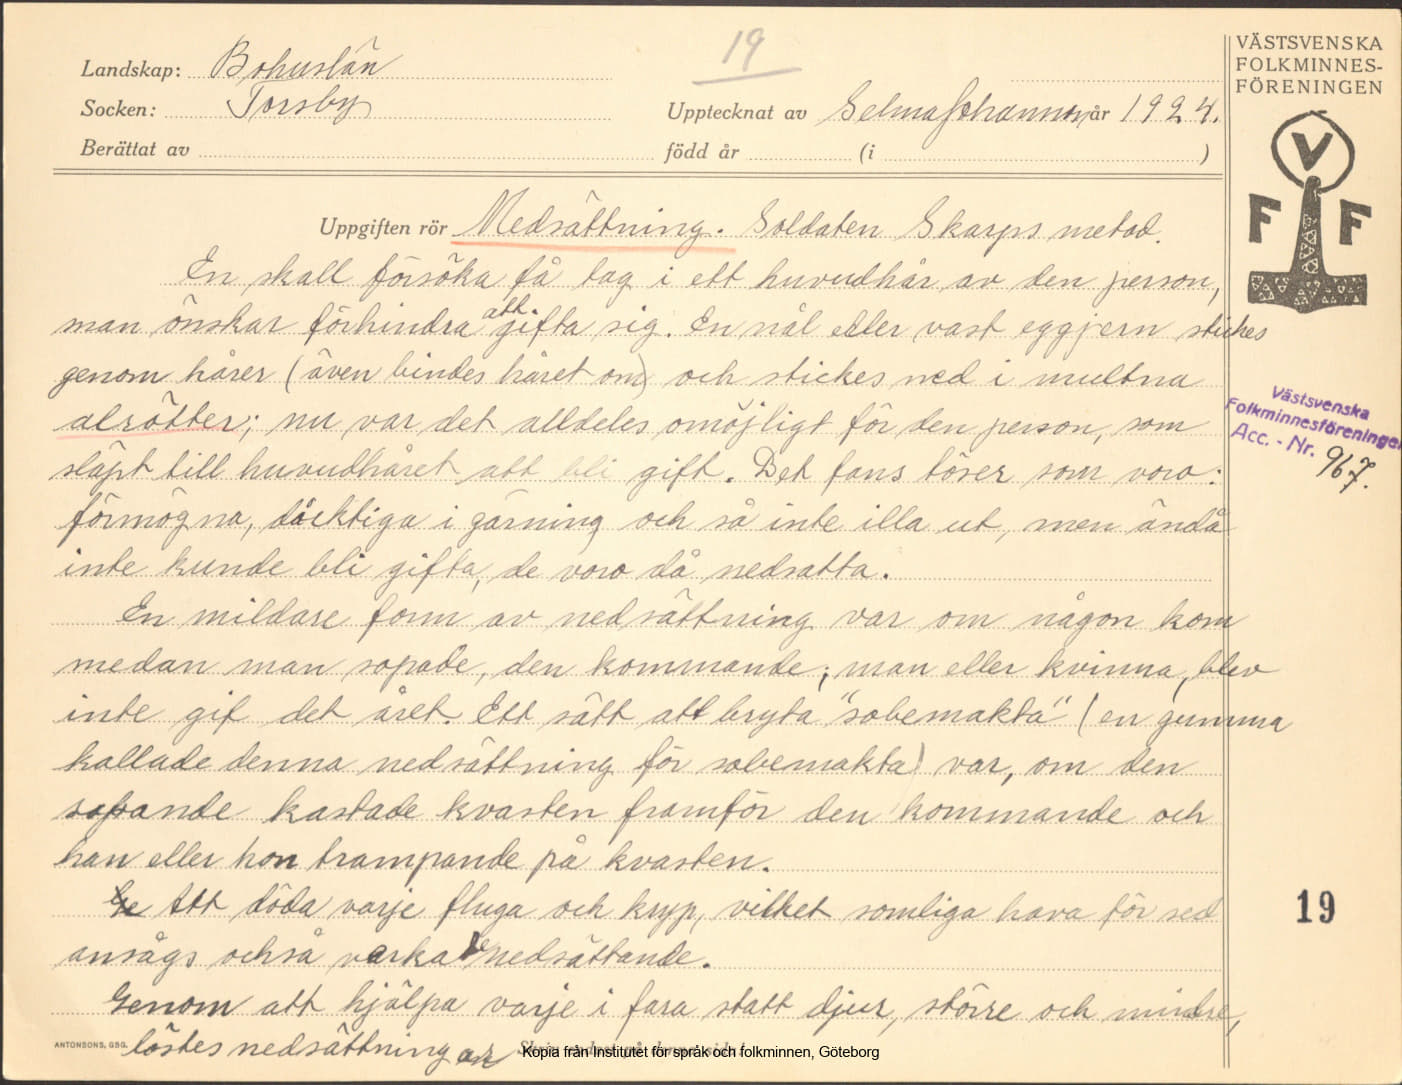 Landskap: Bohuslän
19
Socken: Torsby
Upptecknat av Selma Johansson år 1924.
Berättat av
född år (i )
VÄSTSVENSKA
FOLKMINNES-
FÖRENINGEN
V
F F
Uppgiften rör Nedsättning. Soldaten Skarps metod.
En skall försöka få tag i ett huvudhår av den person,
man önskar förhindra att gifta sig. En nål eller vast eggjern stickes
genom hårer (även bindes håret om) och stickes ned i multna
alrötter; nu var det alldeles omöjligt för den person, som
släpt till huvudhåret att bli gift. Det fans töser som voro:
förmögna, dåcktiga i gärning och så inte illa ut, men ändå
inte kunde bli gifta, de voro då nedsatta.
En mildare form av nedsättning var om någon kom
medan man sopade, den kommande; man eller kvinna, blev
inte gif det året. Ett sätt att bryta "sobemakta" (en gumma
kallade denna nedsättning för sobemakta) var, om den
sopande kastade kvasten framför den kommande och
han eller hon trampande på kvasten.
Att döda varje fluga och kryp, vilket somliga hava för sed
ansågs också varka nedsättande.
Genom att hjälpa varje i fara statt djur, större och mindre,
löstes nedsättningar
Västsvenska
Folkminnesföreningen
Acc. - Nr. 967.
19
ANTONSONS, GBG.
Kopia från Institutet för språk och folkminnen, Göteborg